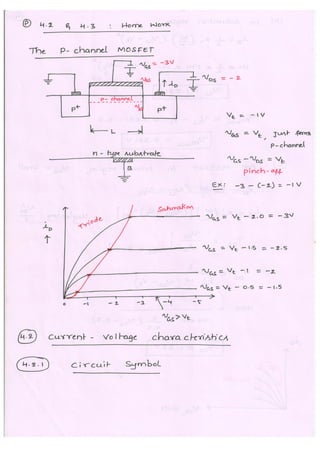 P 4.2 & 4.3 : Home Work
The P-channel MOSFET
VGS = -3V
VDS = -2
iD
p-channel
P+
P+
L
n-type substrate
B
Vt = -1V
VGS = Vt, Just forms
P-channel
VGS - VDS = Vt
pinch-off
EX: -3 - (-2) = -1V
iD
Triode
Saturation
VGS = Vt - 2.0 = -3V
VGS = Vt - 1.5 = -2.5
VGS = Vt - 1 = -2
VGS = Vt - 0.5 = -1.5
0 -1 -2 -3 -4 -5
VGS > Vt
4.2 Current - Voltage characteristics
4.2.1 Circuit Symbol